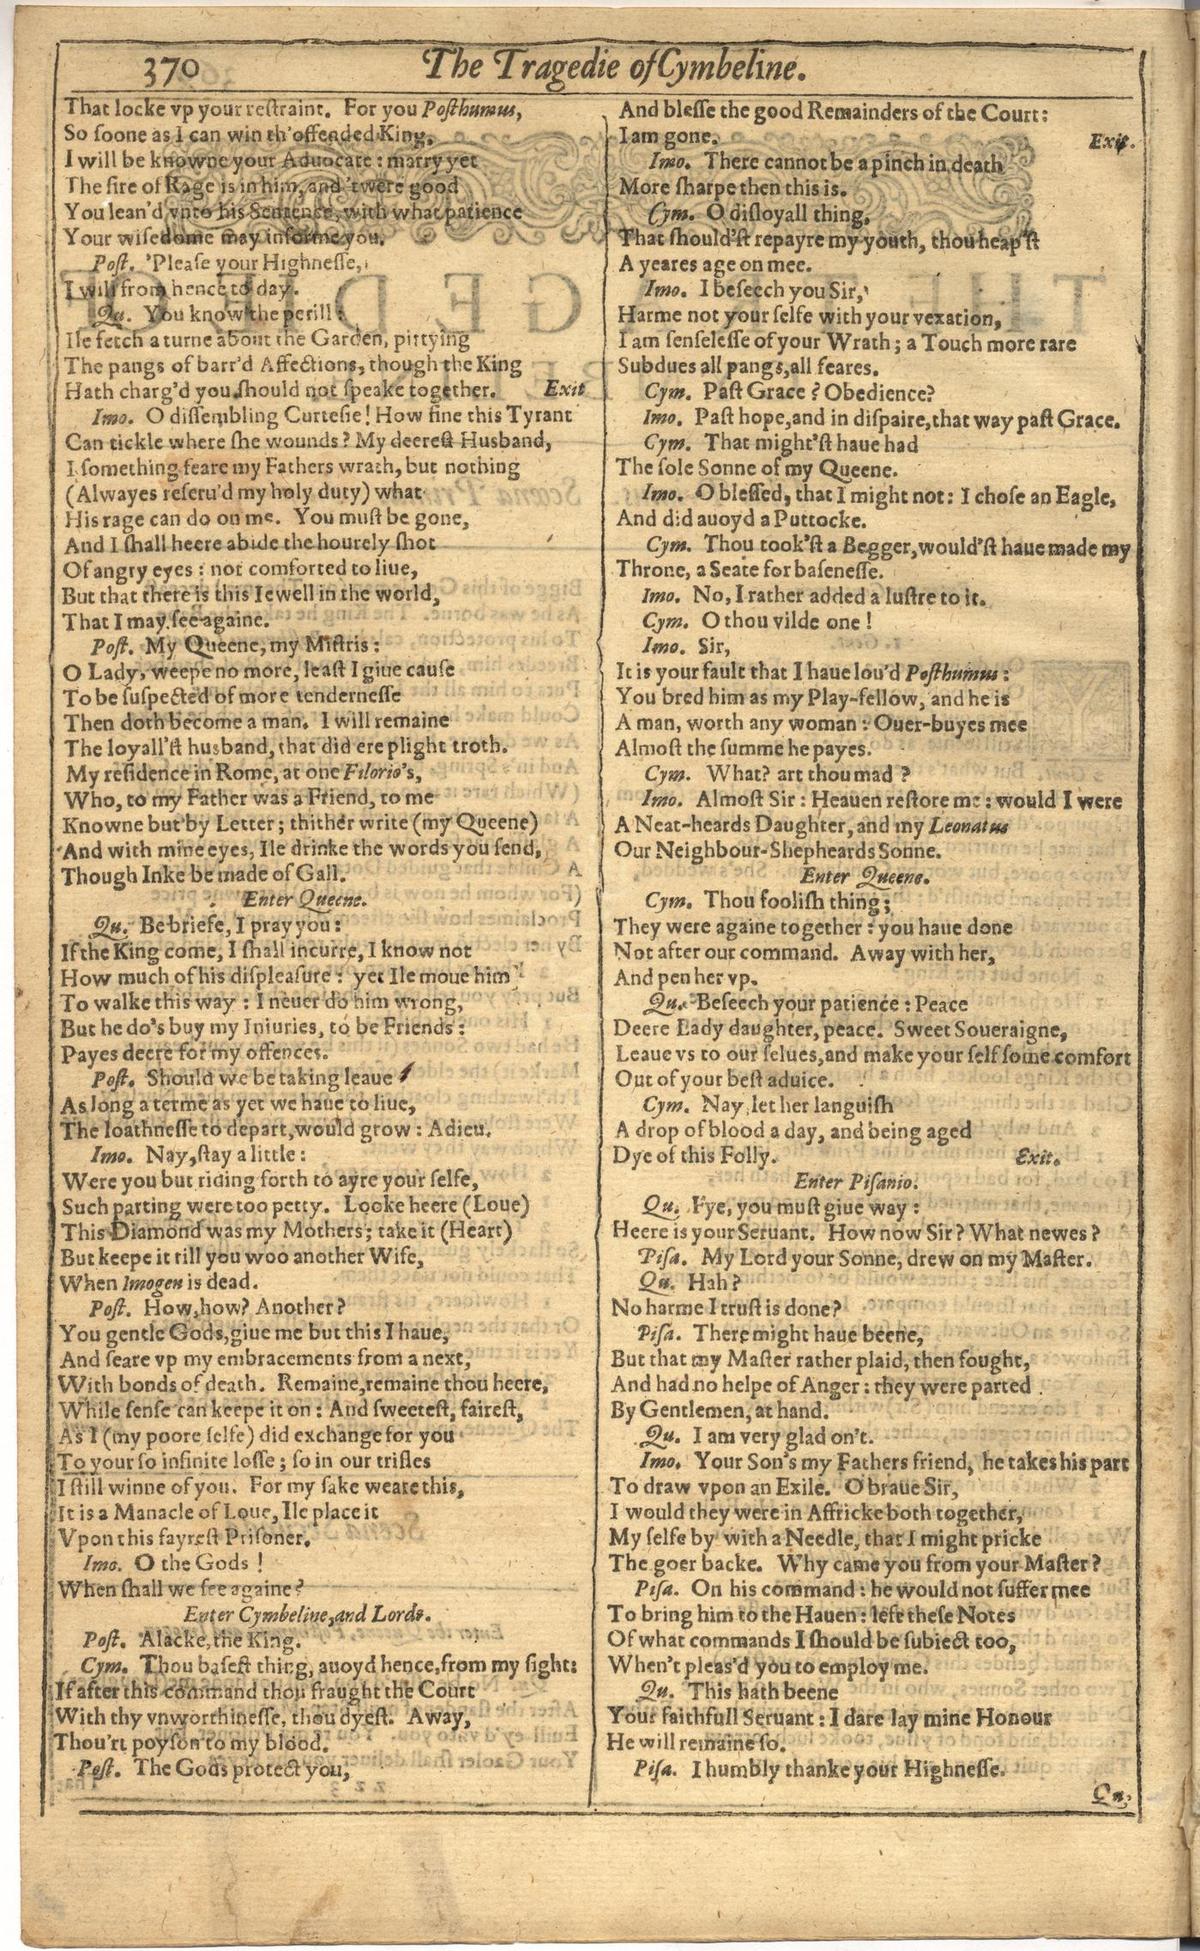 370
The Tragedie of Cymbeline.
That locke vp your reſtraint. For you Poſthumus,
So ſoone as I can win th'offended King,
I will be knowne your Aduocate: marry yet
The fire of Rage is in him, and 'twere good
You lean'd vnto his Sentence, with what patience
Your wiſedome may informe you.
Poſt. 'Pleaſe your Highneſſe,
I will from hence to day.
Qu. You know the perill:
Ile fetch a turne about the Garden, pittying
The pangs of barr'd Affections, though the King
Hath charg'd you ſhould not ſpeake together. Exit
Imo. O diſſembling Curteſie! How fine this Tyrant
Can tickle where ſhe wounds? My deereſt Husband,
I ſomething feare my Fathers wrath, but nothing
(Alwayes reſeru'd my holy duty) what
His rage can do on me. You muſt be gone,
And I ſhall heere abide the hourely ſhot
Of angry eyes: not comforted to liue,
But that there is this Iewell in the world,
That I may ſee againe.
Poſt. My Queene, my Miſtris:
O Lady, weepe no more, leaſt I giue cauſe
To be ſuſpected of more tenderneſſe
Then doth become a man. I will remaine
The loyall'ſt husband, that did ere plight troth.
My reſidence in Rome, at one Filorio's,
Who, to my Father was a Friend, to me
Knowne but by Letter; thither write (my Queene)
And with mine eyes, Ile drinke the words you ſend,
Though Inke be made of Gall.
Enter Queene.
Qu. Be briefe, I pray you:
If the King come, I ſhall incurre, I know not
How much of his diſpleaſure: yet Ile moue him
To walke this way: I neuer do him wrong,
But he do's buy my Iniuries, to be Friends:
Payes deere for my offences.
Poſt. Should we be taking leaue
As long a terme as yet we haue to liue,
The loathneſſe to depart, would grow: Adieu.
Imo. Nay, ſtay a little:
Were you but riding forth to ayre your ſelfe,
Such parting were too petty. Looke heere (Loue)
This Diamond was my Mothers; take it (Heart)
But keepe it till you woo another Wife,
When Imogen is dead.
Poſt. How, how? Another?
You gentle Gods, giue me but this I haue,
And ſeare vp my embracements from a next,
With bonds of death. Remaine, remaine thou heere,
While ſenſe can keepe it on: And ſweeteſt, faireſt,
As I (my poore ſelfe) did exchange for you
To your ſo infinite loſſe; ſo in our trifles
I ſtill winne of you. For my ſake weare this,
It is a Manacle of Loue, Ile place it
Vpon this fayreſt Priſoner.
Imo. O the Gods!
When ſhall we ſee againe?
Enter Cymbeline, and Lords.
Poſt. Alacke, the King.
Cym. Thou baſeſt thing, auoyd hence, from my ſight:
If after this command thou fraught the Court
With thy vnworthineſſe, thou dyeſt. Away,
Thou'rt poyſon to my blood.
Poſt. The Gods protect you,
And bleſſe the good Remainders of the Court:
I am gone. Exit.
Imo. There cannot be a pinch in death
More ſharpe then this is.
Cym. O diſloyall thing,
That ſhould'ſt repayre my youth, thou heap'ſt
A yeares age on mee.
Imo. I beſeech you Sir,
Harme not your ſelfe with your vexation,
I am ſenſeleſſe of your Wrath; a Touch more rare
Subdues all pangs, all feares.
Cym. Paſt Grace? Obedience?
Imo. Paſt hope, and in diſpaire, that way paſt Grace.
Cym. That might'ſt haue had
The ſole Sonne of my Queene.
Imo. O bleſſed, that I might not: I choſe an Eagle,
And did auoyd a Puttocke.
Cym. Thou took'ſt a Begger, would'ſt haue made my
Throne, a Seate for baſeneſſe.
Imo. No, I rather added a luſtre to it.
Cym. O thou vilde one!
Imo. Sir,
It is your fault that I haue lou'd Poſthumus:
You bred him as my Play-fellow, and he is
A man, worth any woman: Ouer-buyes mee
Almoſt the ſumme he payes.
Cym. What? art thou mad?
Imo. Almoſt Sir: Heauen reſtore me: would I were
A Neat-heards Daughter, and my Leonatus
Our Neighbour-Shepheards Sonne.
Enter Queene.
Cym. Thou fooliſh thing;
They were againe together: you haue done
Not after our command. Away with her,
And pen her vp.
Qu. Beſeech your patience: Peace
Deere Lady daughter, peace. Sweet Soueraigne,
Leaue vs to our ſelues, and make your ſelf ſome comfort
Out of your beſt aduice.
Cym. Nay let her languiſh
A drop of blood a day, and being aged
Dye of this Folly. Exit.
Enter Piſanio.
Qu. Fye, you muſt giue way:
Heere is your Seruant. How now Sir? What newes?
Piſa. My Lord your Sonne, drew on my Maſter.
Qu. Hah?
No harme I truſt is done?
Piſa. There might haue beene,
But that my Maſter rather plaid, then fought,
And had no helpe of Anger: they were parted
By Gentlemen, at hand.
Qu. I am very glad on't.
Imo. Your Son's my Fathers friend, he takes his part
To draw vpon an Exile. O braue Sir,
I would they were in Affricke both together,
My ſelfe by with a Needle, that I might pricke
The goer backe. Why came you from your Maſter?
Piſa. On his command: he would not ſuffer mee
To bring him to the Hauen: left theſe Notes
Of what commands I ſhould be ſubiect too,
When't pleas'd you to employ me.
Qu. This hath beene
Your faithfull Seruant: I dare lay mine Honour
He will remaine ſo.
Piſa. I humbly thanke your Highneſſe.
Qu.